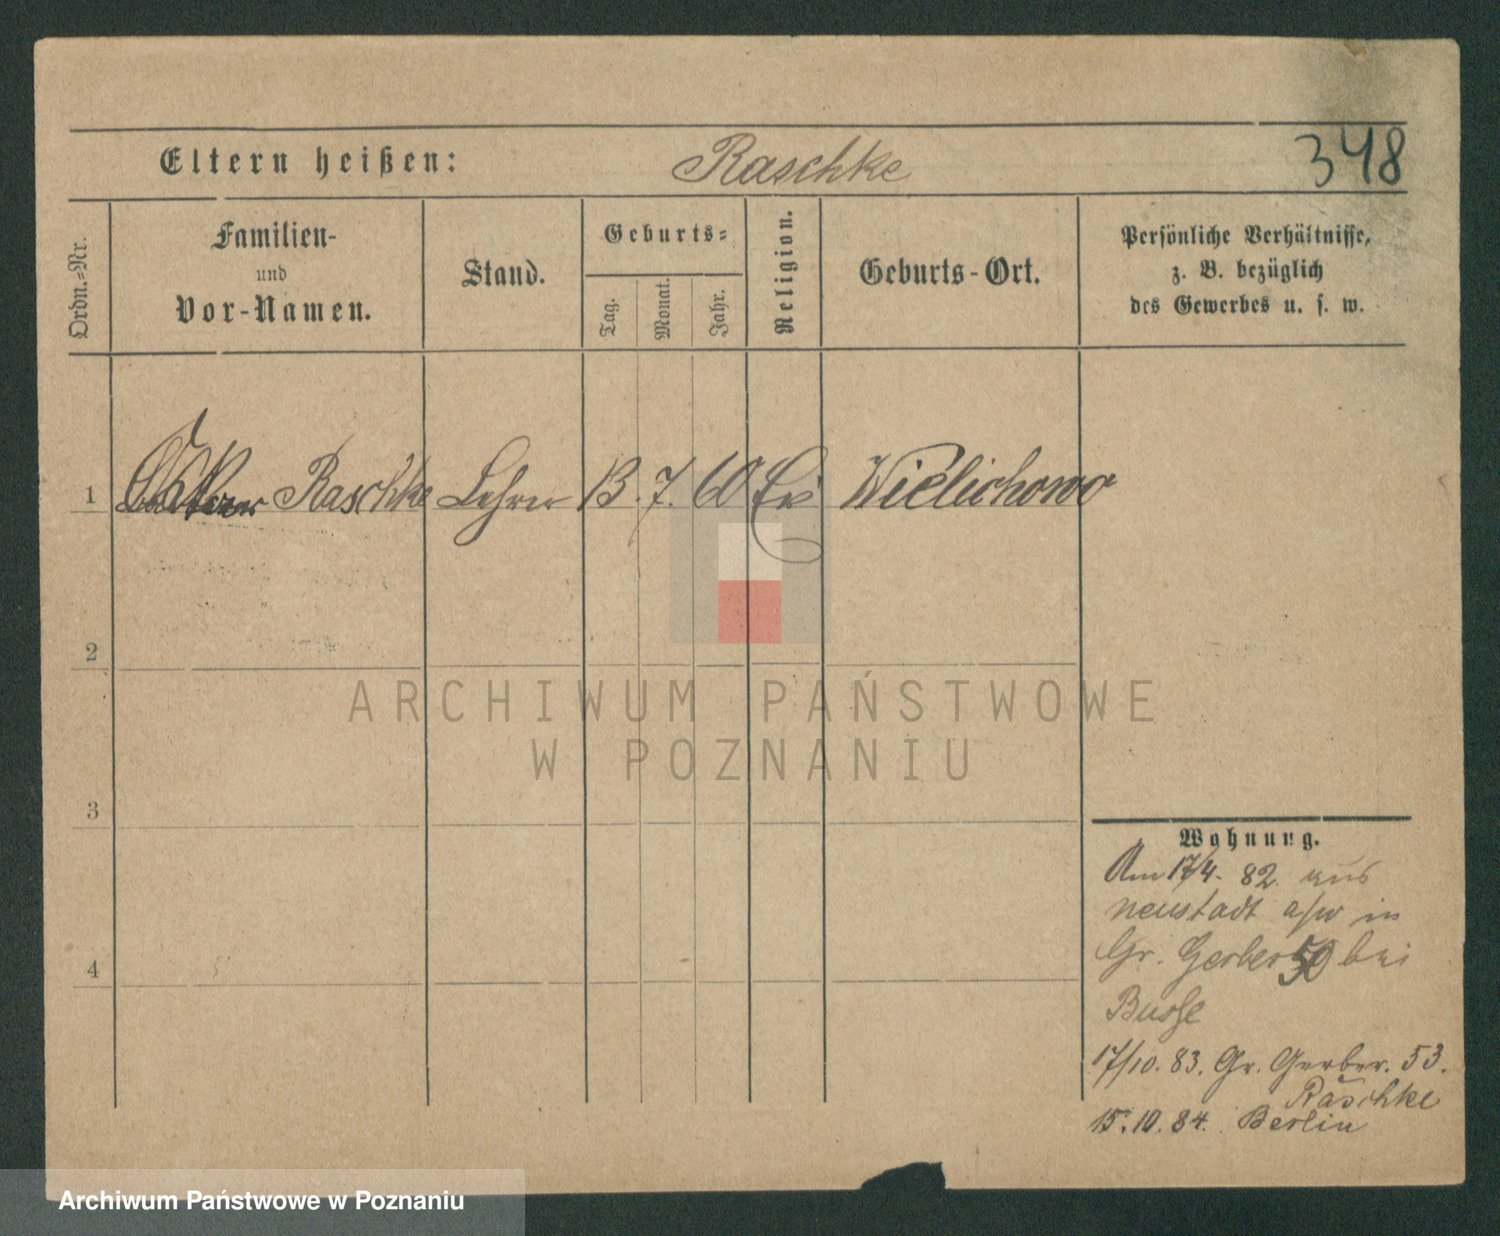 348
Eltern heißen: Raschke
Ordn.-Nr.
Familien-
und
Vor-Namen.
Stand.
Geburts-
Tag.
Monat.
Jahr.
Religion.
Geburts-Ort.
Persönliche Verhältnisse,
z. B. bezüglich
des Gewerbes u. s. w.
1 Raschke Lehrer 13. 7. 60 Ev Wielichowo
2
3
4
ARCHIWUM PAŃSTWOWE
W POZNANIU
Wohnung.
Am 17/4. 82 aus
Neustadt a/w in
Gr. Gerber 50 bei
Busse
17/10. 83. Gr. Gerber. 53.
Raschke
15. 10. 84. Berlin
Archiwum Państwowe w Poznaniu